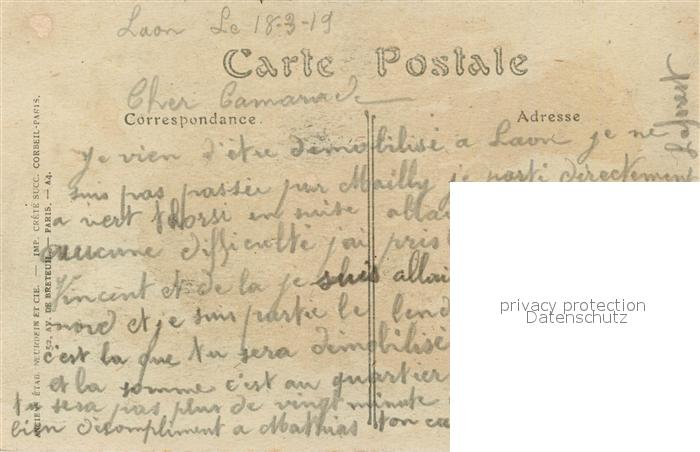 Laon Le 18-3-19
Carte Postale
Cher Camarade
Correspondance.
Adresse
je vien d'être démobilisé a Laon je ne
suis pas passée par Mailly je parti directement
a vert en suite allai
aucune difficulté j'ai pris
Vincent et de la je suis allai
nord et je suis partie le lend
c'est la que tu sera démobilisé
et la somme c'est au quartier
tu sera pas plus de vingt minute
bien des compliment a Mathias ton
Laforest
ANCIENS ÉTAB. NEURDEIN ET CIE. — IMP. CRÉTÉ SUCC. CORBEIL-PARIS.
52, AV. DE BRETEUIL — PARIS. — A4.
privacy protection
Datenschutz